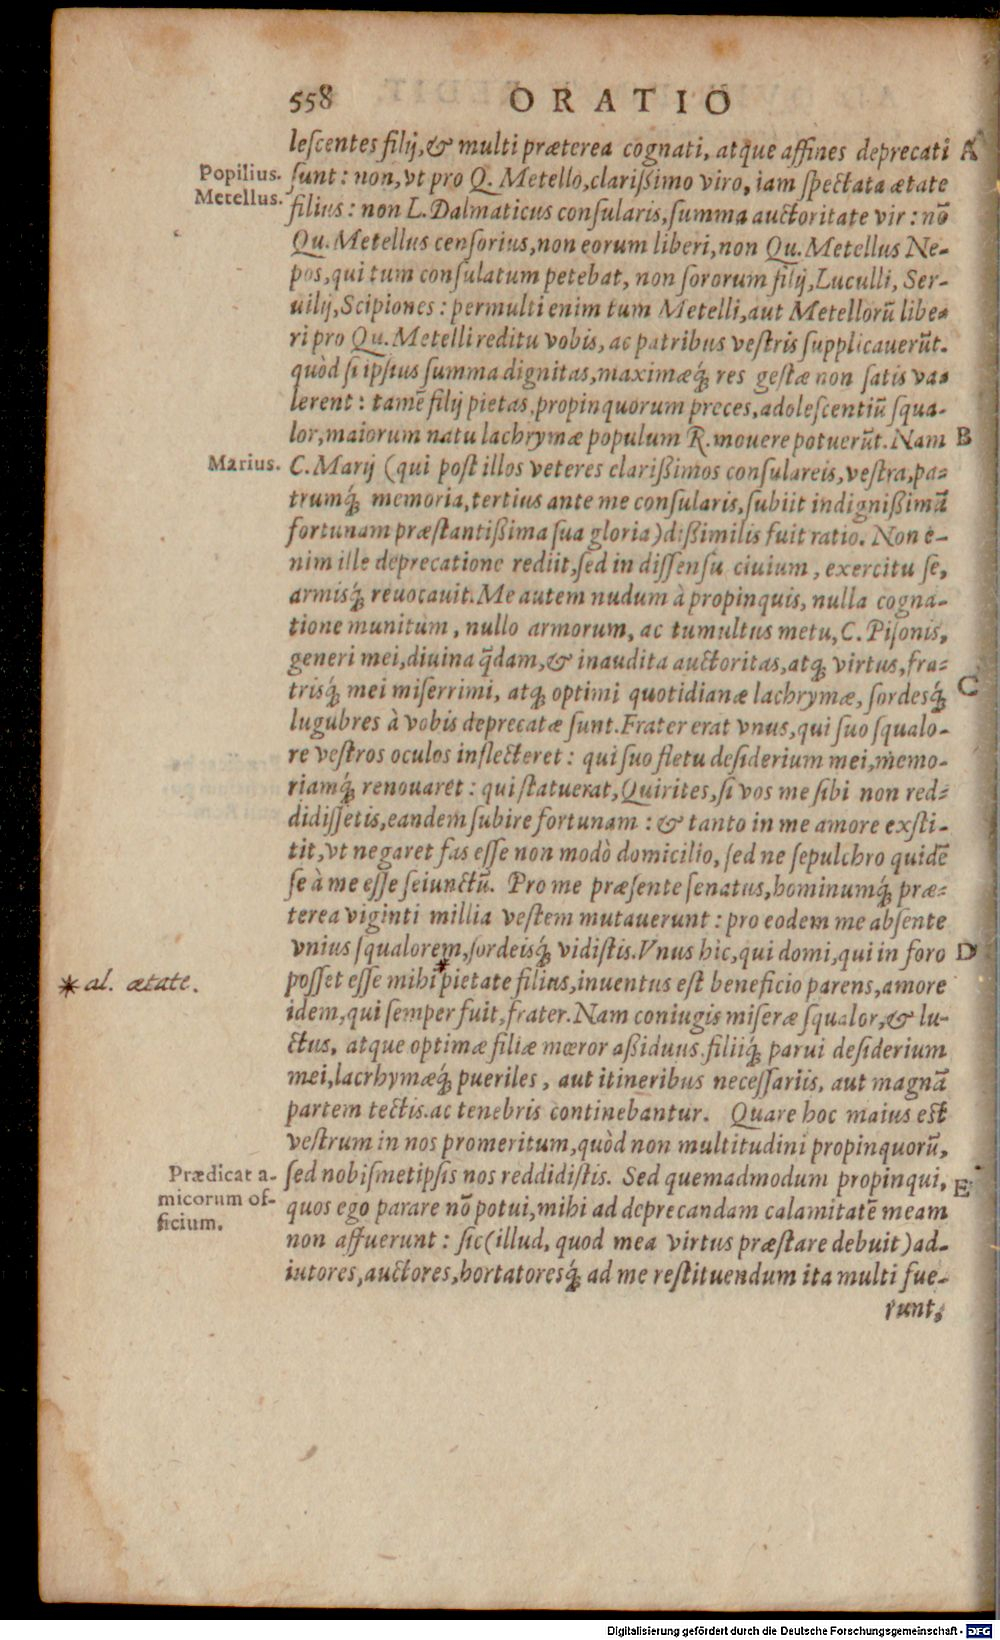 558 ORATIO
leſcentes filij, & multi præterea cognati, atque affines deprecati A
Popilius. ſunt: non, vt pro Q. Metello, clarißimo viro, iam ſpectata ætate
Metellus. filius: non L. Dalmaticus conſularis, ſumma auctoritate vir: nō
Qu. Metellus cenſorius, non eorum liberi, non Qu. Metellus Ne-
pos, qui tum conſulatum petebat, non ſororum filij, Luculli, Ser-
uilij, Scipiones: permulti enim tum Metelli, aut Metellorū libe-
ri pro Qu. Metelli reditu vobis, ac patribus veſtris ſupplicauerūt.
quòd ſi ipſius ſumma dignitas, maximæq́; res geſtæ non ſatis va-
lerent: tamē filij pietas, propinquorum preces, adoleſcentiū ſqua-
lor, maiorum natu lachrymæ populum R. mouere potuerūt. Nam B
Marius. C. Marij (qui poſt illos veteres clarißimos conſulareis, veſtra, pa-
trumq́; memoria, tertius ante me conſularis, ſubiit indignißimā
fortunam præſtantißima ſua gloria) dißimilis fuit ratio. Non e-
nim ille deprecatione rediit, ſed in diſſenſu ciuium, exercitu ſe,
armisq́; reuocauit. Me autem nudum à propinquis, nulla cogna-
tione munitum, nullo armorum, ac tumultus metu, C. Piſonis,
generi mei, diuina q̄dam, & inaudita auctoritas, atq; virtus, fra-
trisq́; mei miſerrimi, atq; optimi quotidianæ lachrymæ, ſordesq́; C
lugubres à vobis deprecatæ ſunt. Frater erat vnus, qui ſuo ſqualo-
re veſtros oculos inflecteret: qui ſuo fletu deſiderium mei, memo-
riamq́; renouaret: qui ſtatuerat, Quirites, ſi vos me ſibi non red-
didiſſetis, eandem ſubire fortunam: & tanto in me amore exſti-
tit, vt negaret fas eſſe non modò domicilio, ſed ne ſepulchro quidē
ſe à me eſſe ſeiunctū. Pro me præſente ſenatus, hominumq́; præ-
terea viginti millia veſtem mutauerunt: pro eodem me abſente
vnius ſqualorem, ſordeisq́; vidiſtis. Vnus hic, qui domi, qui in foro D
* al. ætate. poſſet eſſe mihi * pietate filius, inuentus eſt beneficio parens, amore
idem, qui ſemper fuit, frater. Nam coniugis miſeræ ſqualor, & lu-
ctus, atque optimæ filiæ mœror aßiduus, filiiq́; parui deſiderium
mei, lacrhymæq́; pueriles, aut itineribus neceſſariis, aut magnā
partem tectis, ac tenebris continebantur. Quare hoc maius eſt
veſtrum in nos promeritum, quòd non multitudini propinquorū,
Prædicat a- ſed nobiſmetipſis nos reddidiſtis. Sed quemadmodum propinqui, E
micorum of- quos ego parare nō potui, mihi ad deprecandam calamitatē meam
ficium. non affuerunt: ſic (illud, quod mea virtus præſtare debuit) ad-
iutores, auctores, hortatoresq́; ad me reſtituendum ita multi fue-
runt,
Digitalisierung gefördert durch die Deutsche Forschungsgemeinschaft - DFG